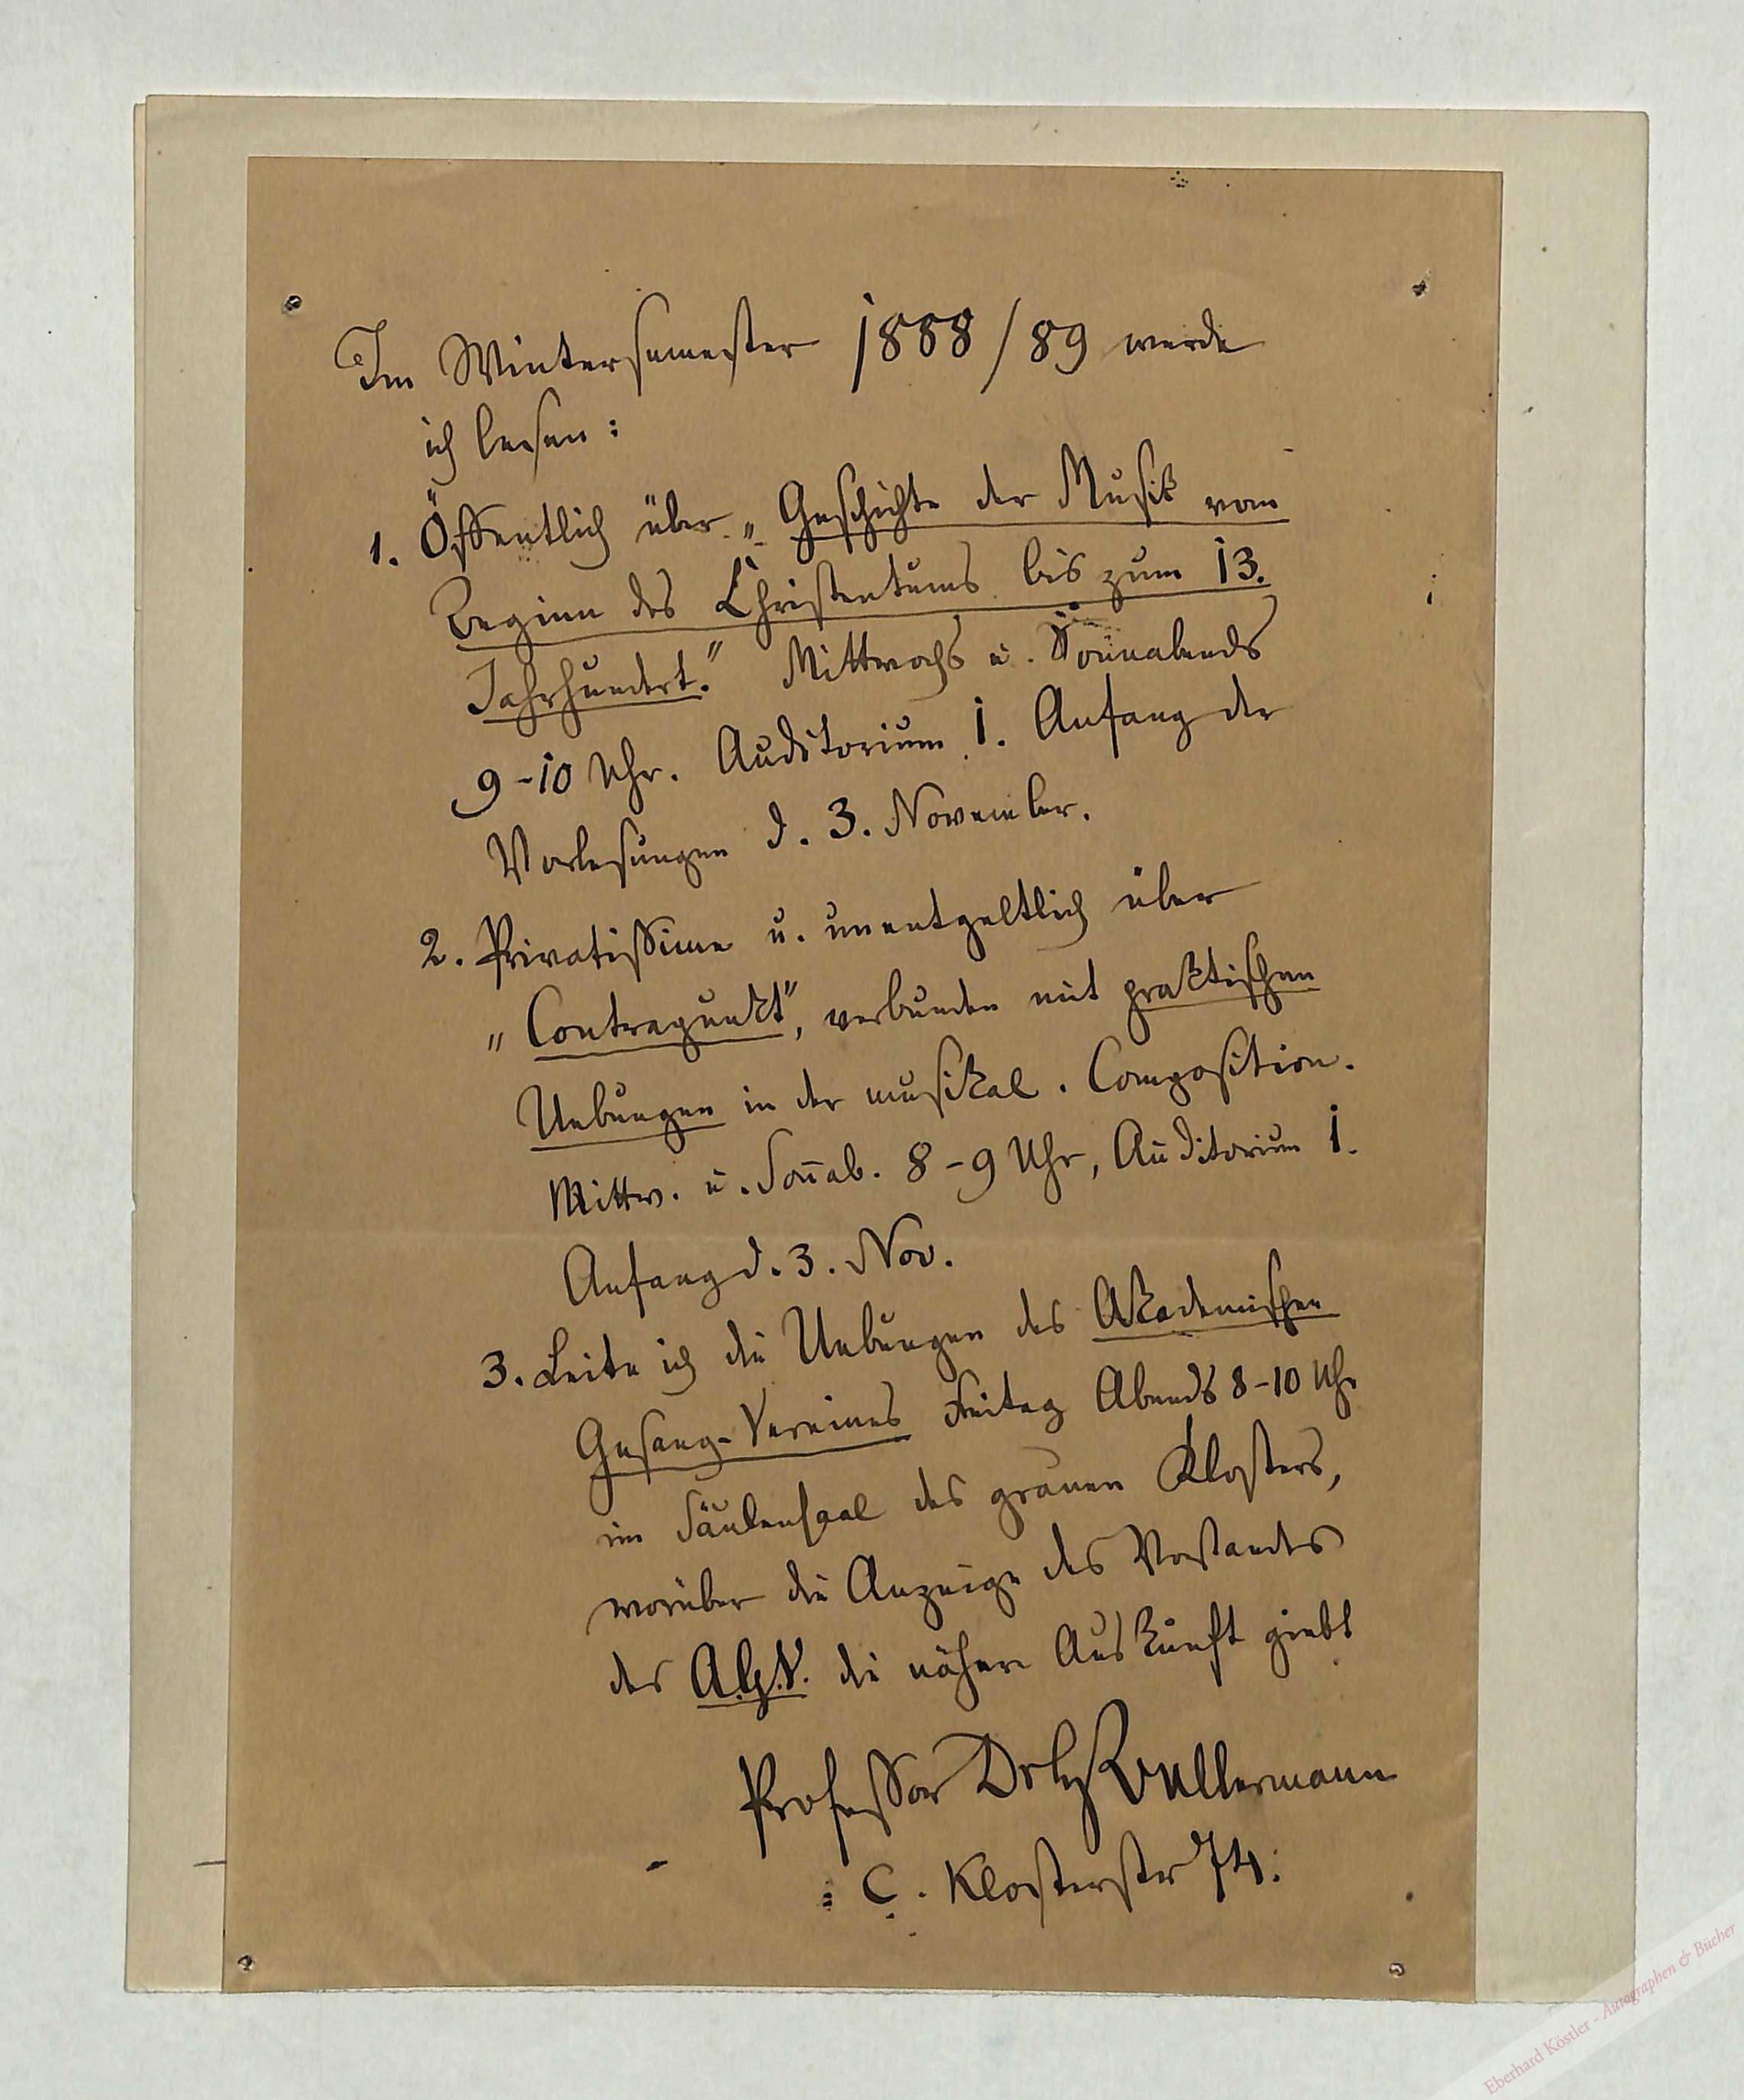 Im Wintersemester 1888/89 werde
ich lesen:
1. Öffentlich über „Geschichte der Musik vom
Beginn des Christentums bis zum 13.
Jahrhundert." Mittwochs u. Sonnabends
9-10 Uhr. Auditorium 1. Anfang der
Vorlesungen d. 3. November.
2. Privatissime u. unentgeltlich über
„Contrapunkt", verbunden mit praktischen
Uebungen in der musikal. Composition.
Mittw. u. Son̄ab. 8-9 Uhr, Auditorium 1.
Anfang d. 3. Nov.
3. Leite ich die Uebungen des Akademischen
Gesang-Vereines Freitag Abends 8-10 Uhr
im Säulensaal des grauen Klosters,
worüber die Anzeige des Vorstandes
des A.G.V. die nähere Auskunft giebt
Professor Dr H Bellermann
C. Klosterstr 74.
Eberhard Köstler - Autographen & Bücher